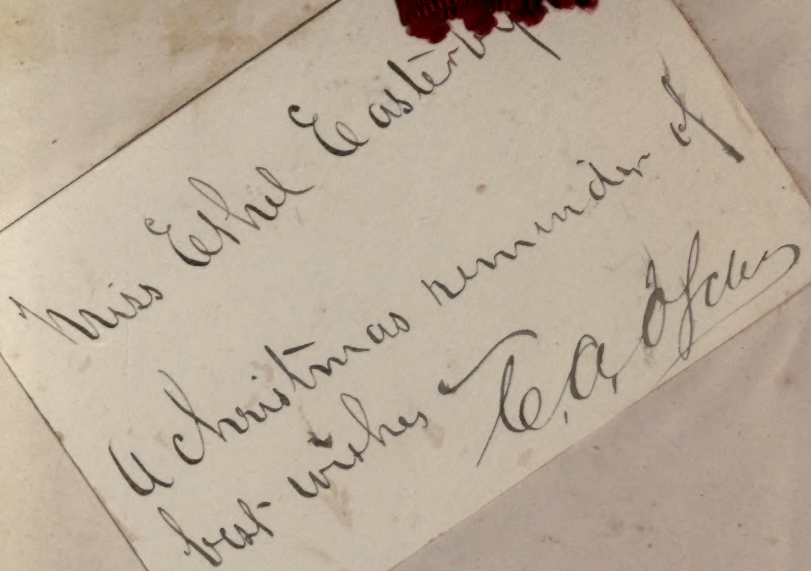 Miss Ethel Easterby
A Christmas reminder of
best wishes
C. A.